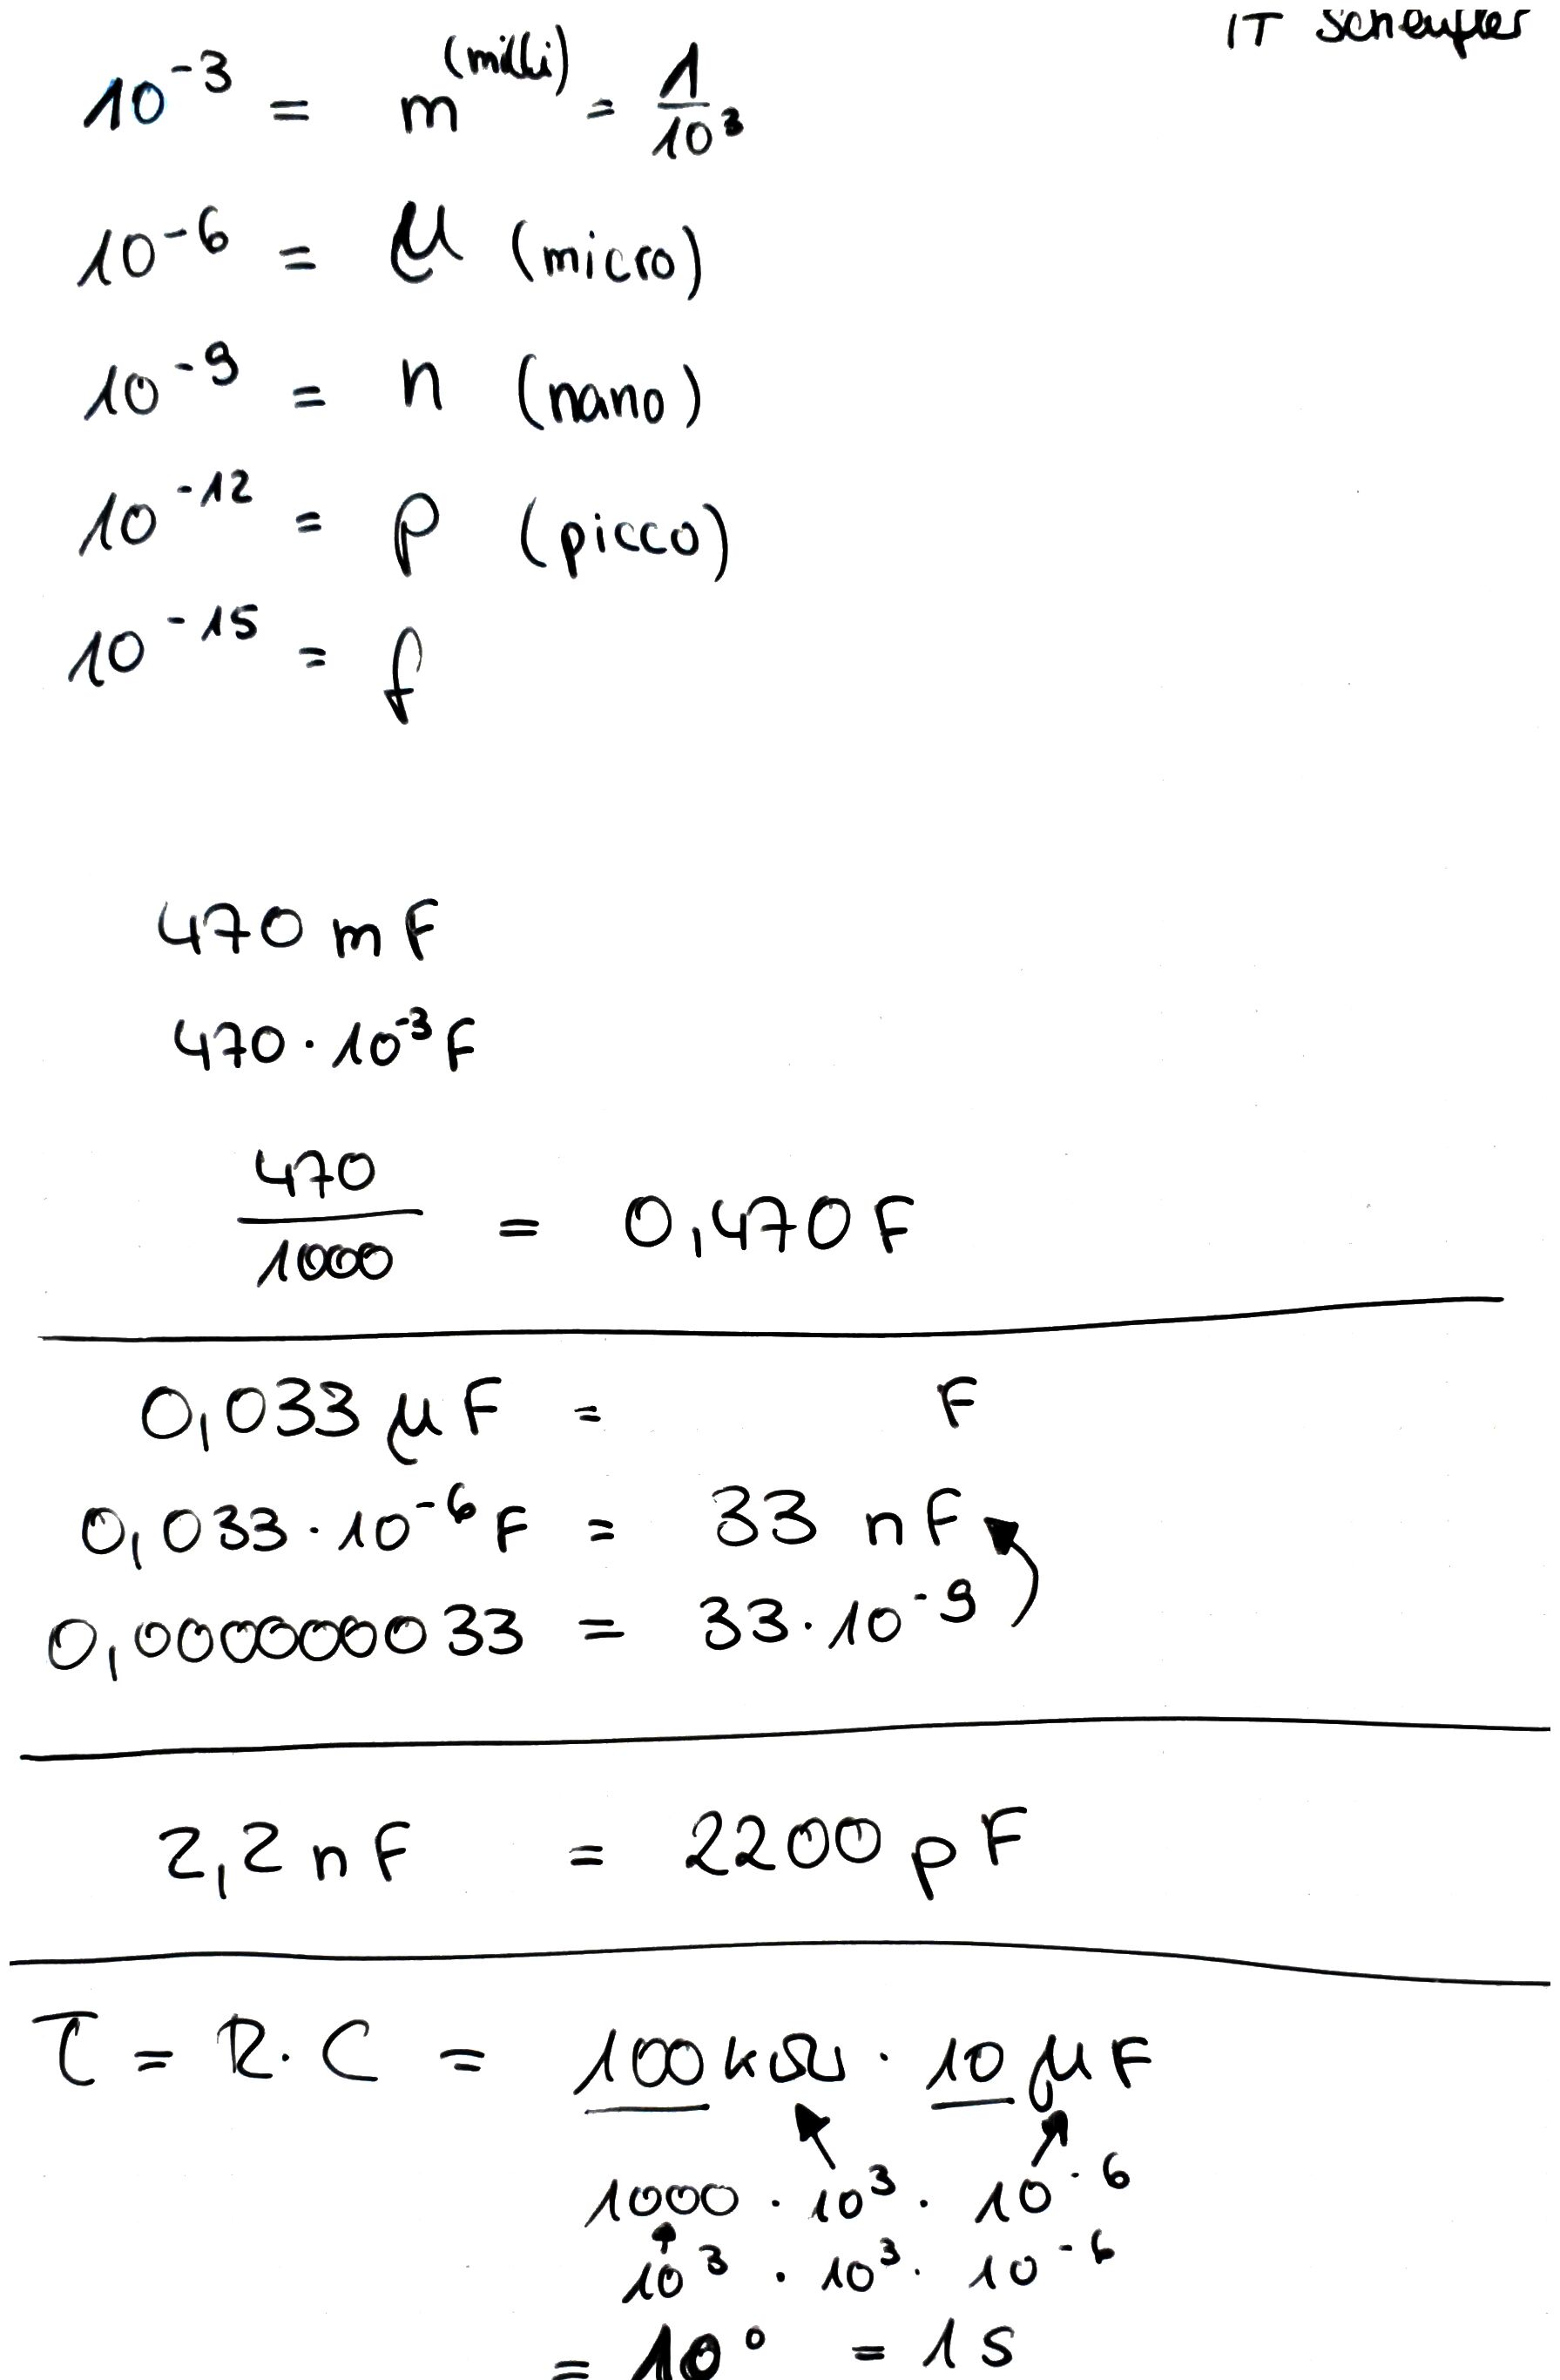 IT Scheufler
10⁻³ = m (milli) = 1/10³
10⁻⁶ = μ (micro)
10⁻⁹ = n (nano)
10⁻¹² = p (picco)
10⁻¹⁵ = f
470 mF
470 · 10⁻³ F
470/1000 = 0,470 F
0,033 μF = F
0,033 · 10⁻⁶ F = 33 nF
0,000000033 = 33 · 10⁻⁹
2,2 nF = 2200 pF
τ = R · C = 100 kΩ · 10 μF
1000 · 10³ · 10⁻⁶
10³ · 10³ · 10⁻⁶
= 10⁰ = 1 s